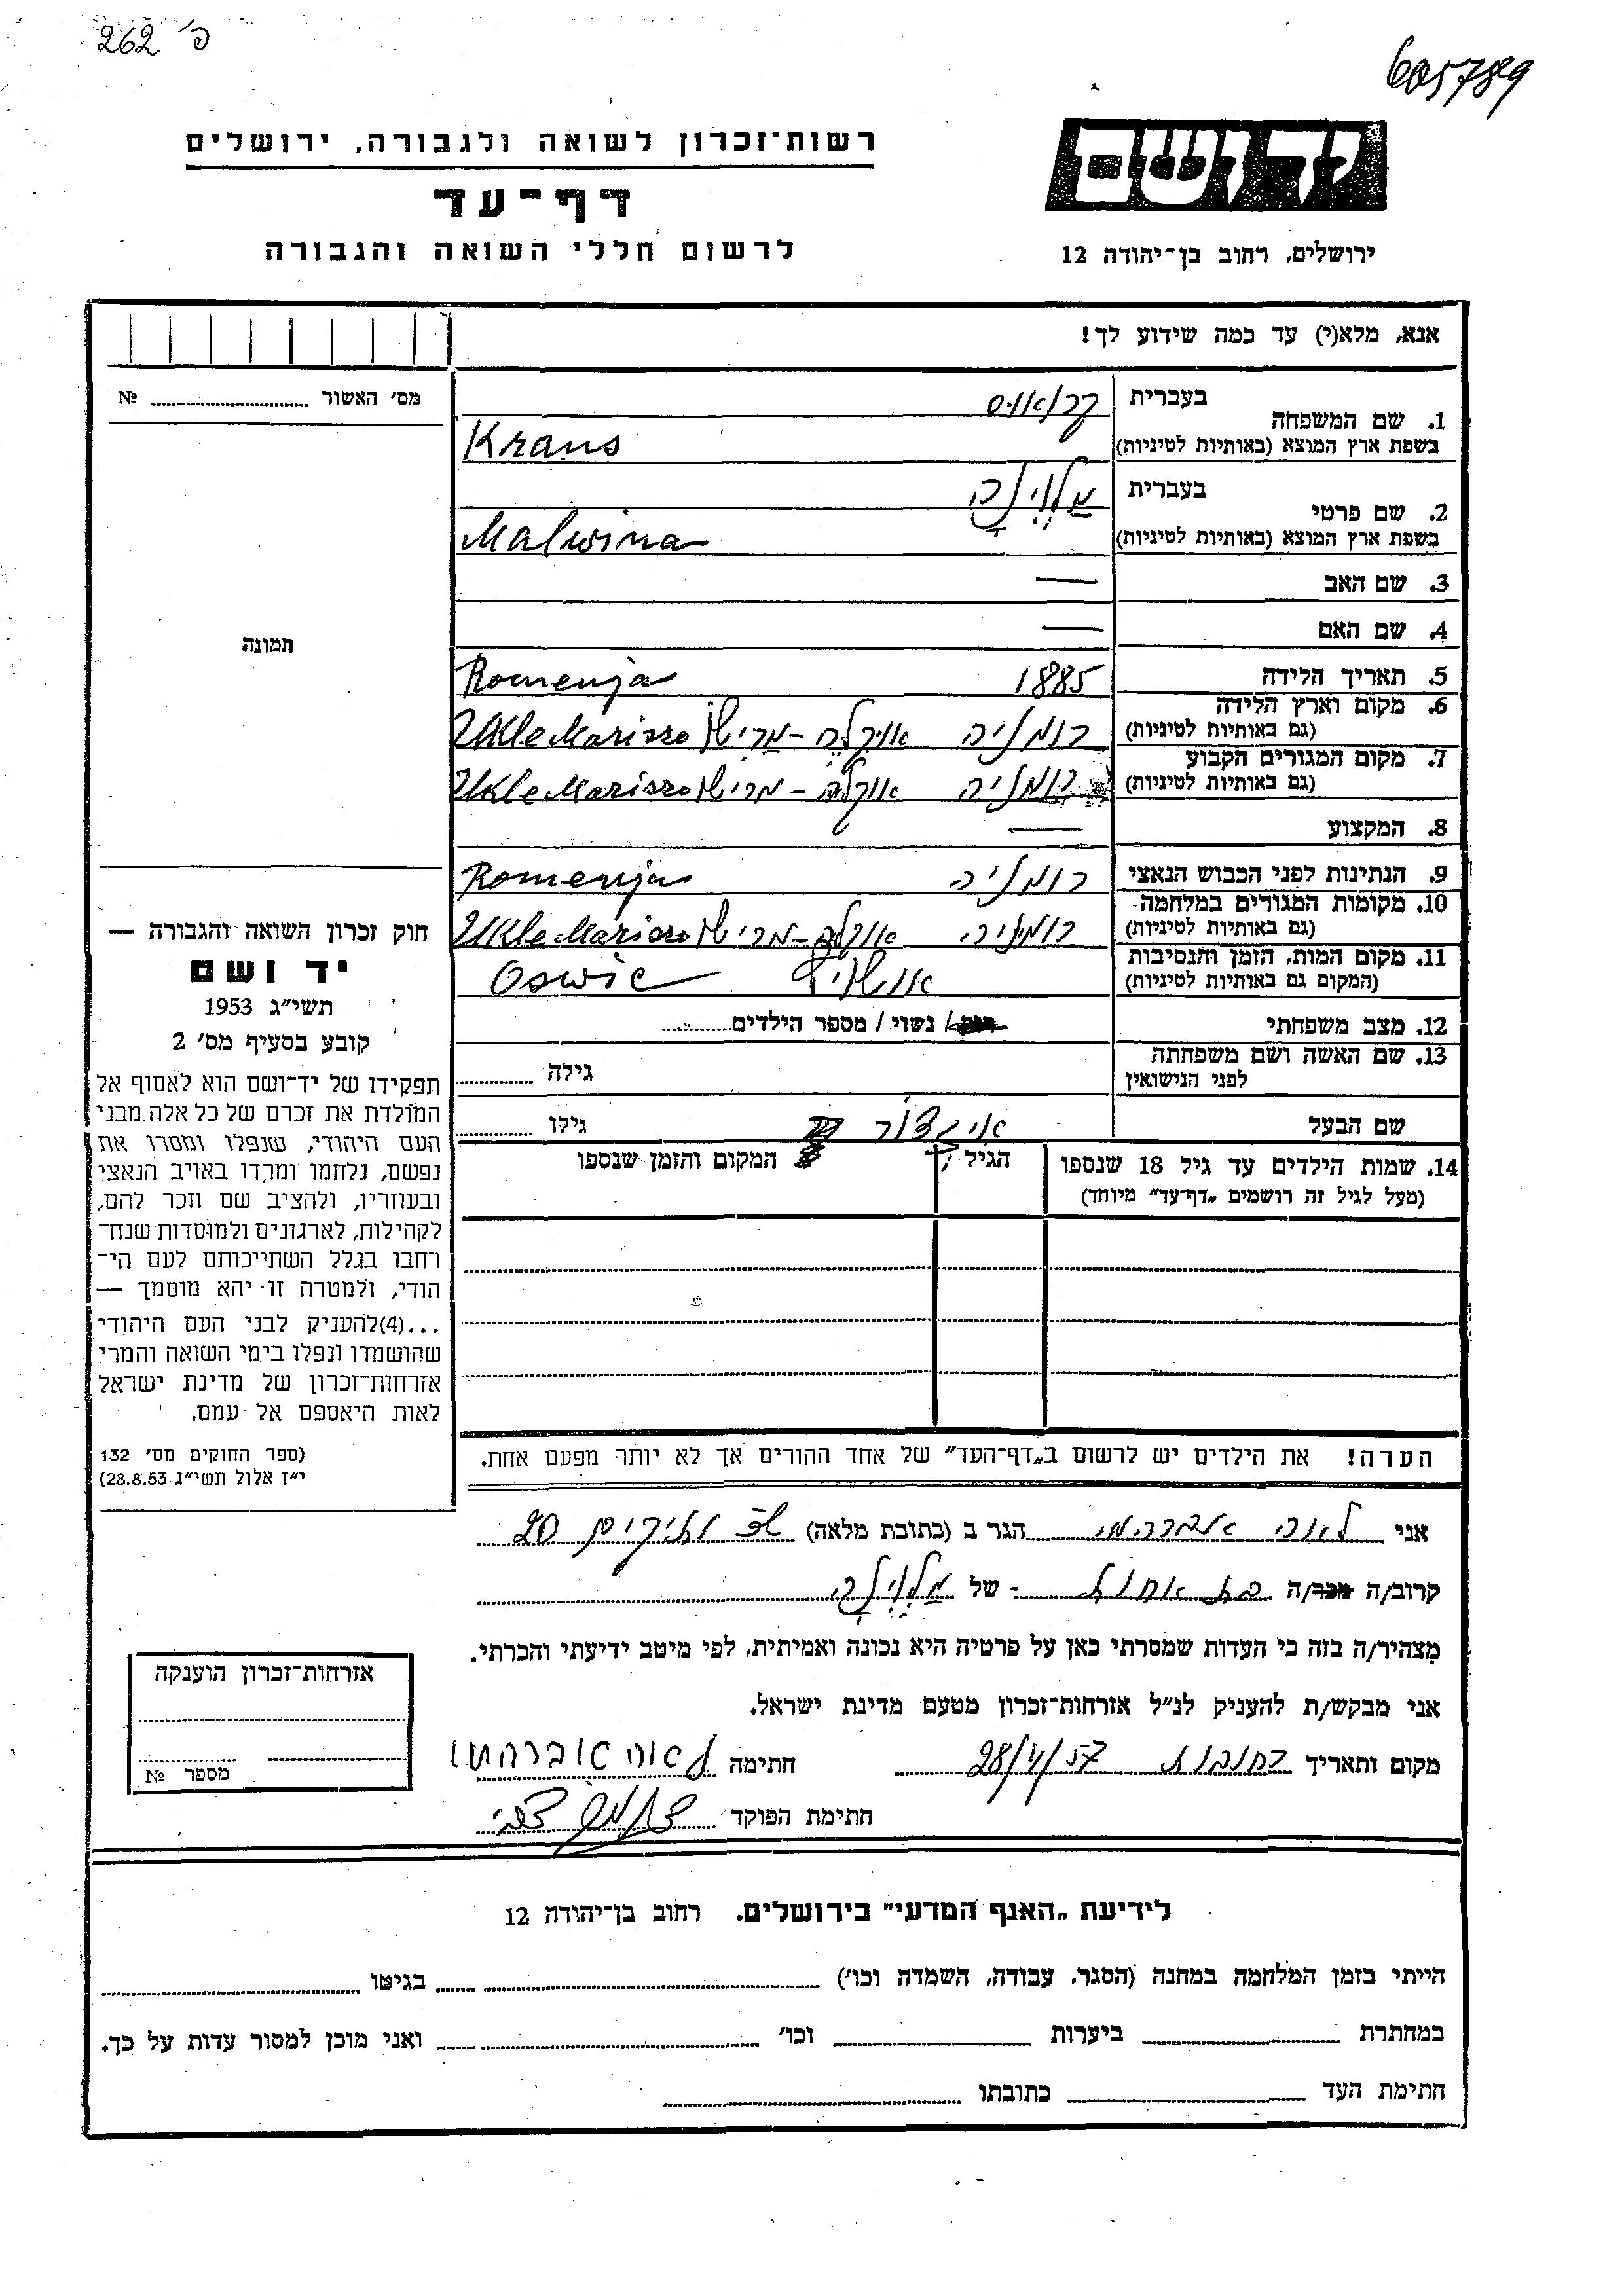 262 פ'
605789
רשות־זכרון לשואה ולגבורה, ירושלים
דף־עד
לרשום חללי השואה והגבורה
יד ושם
ירושלים, רחוב בן־יהודה 12
אנא, מלא(י) עד כמה שידוע לך!
מס' האשור № 
1. שם המשפחה בעברית קראוס
בשפת ארץ המוצא (באותיות לטיניות) Kraus
2. שם פרטי בעברית מַלְוִינָה
בשפת ארץ המוצא (באותיות לטיניות) Malwina
3. שם האב —
4. שם האם —
תמונה
5. תאריך הלידה 1885 Romenja
6. מקום וארץ הלידה
(גם באותיות לטיניות) רומניה
7. מקום המגורים הקבוע
(גם באותיות לטיניות) רומניה
8. המקצוע —
9. הנתינות לפני הכבוש הנאצי רומניה Romenja
10. מקומות המגורים במלחמה
(גם באותיות לטיניות) רומניה
11. מקום המות, הזמן והנסיבות
(המקום גם באותיות לטיניות) Oswic
12. מצב משפחתי נשוי / מספר הילדים
13. שם האשה ושם משפחתה
לפני הנישואין גילה
שם הבעל גילו
14. שמות הילדים עד גיל 18 שנספו הגיל המקום והזמן שנספו
(מעל לגיל זה רושמים „דף־עד" מיוחד)
חוק זכרון השואה והגבורה —
יד ושם
תשי"ג 1953
קובע בסעיף מס' 2
תפקידו של יד־ושם הוא לאסוף אל
המולדת את זכרם של כל אלה מבני
העם היהודי, שנפלו ומסרו את
נפשם, נלחמו ומרדו באויב הנאצי
ובעוזריו, ולהציב שם וזכר להם,
לקהילות, לארגונים ולמוסדות שנח־
רחבו בגלל השתייכותם לעם הי־
הודי, ולמטרה זו יהא מוסמך —
...(4)להעניק לבני העם היהודי
שהושמדו ונפלו בימי השואה והמרי
אזרחות־זכרון של מדינת ישראל
לאות היאספם אל עמם.
(ספר החוקים מס' 132
י"ז אלול תשי"ג 28.8.53)
הערה! את הילדים יש לרשום ב„דף־העד" של אחד ההורים אך לא יותר מפעם אחת.
אני לאה אברהמי הגר ב (כתובת מלאה) 20
קרוב/ה מכר/ה בת אחות של מַלְוִינָה
מצהיר/ה בזה כי העדות שמסרתי כאן על פרטיה היא נכונה ואמיתית, לפי מיטב ידיעתי והכרתי.
אני מבקש/ת להעניק לנ"ל אזרחות־זכרון מטעם מדינת ישראל.
מקום ותאריך רחובות 28/4/57 חתימה לאה אברהמי
חתימת הפוקד
אזרחות־זכרון הוענקה
מספר №
לידיעת „האגף המדעי" בירושלים. רחוב בן־יהודה 12
הייתי בזמן המלחמה במחנה (הסגר, עבודה, השמדה וכו') בגיטו
במחתרת ביערות וכו' ואני מוכן למסור עדות על כך.
חתימת העד כתובתו